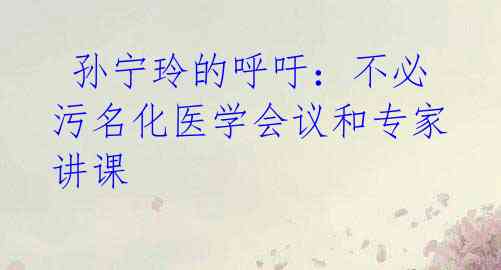 孙宁玲的呼吁：不必
污名化医学会议和专家
讲课